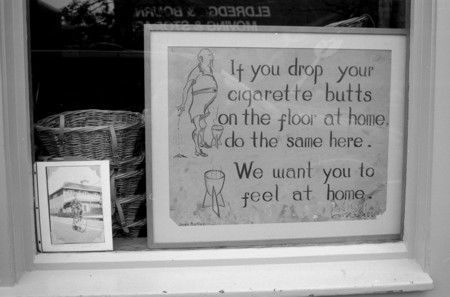 ELDREDGE & BOURN
MOVING & STOR
If you drop your
cigarette butts
on the floor at home,
do the same here.
We want you to
feel at home.